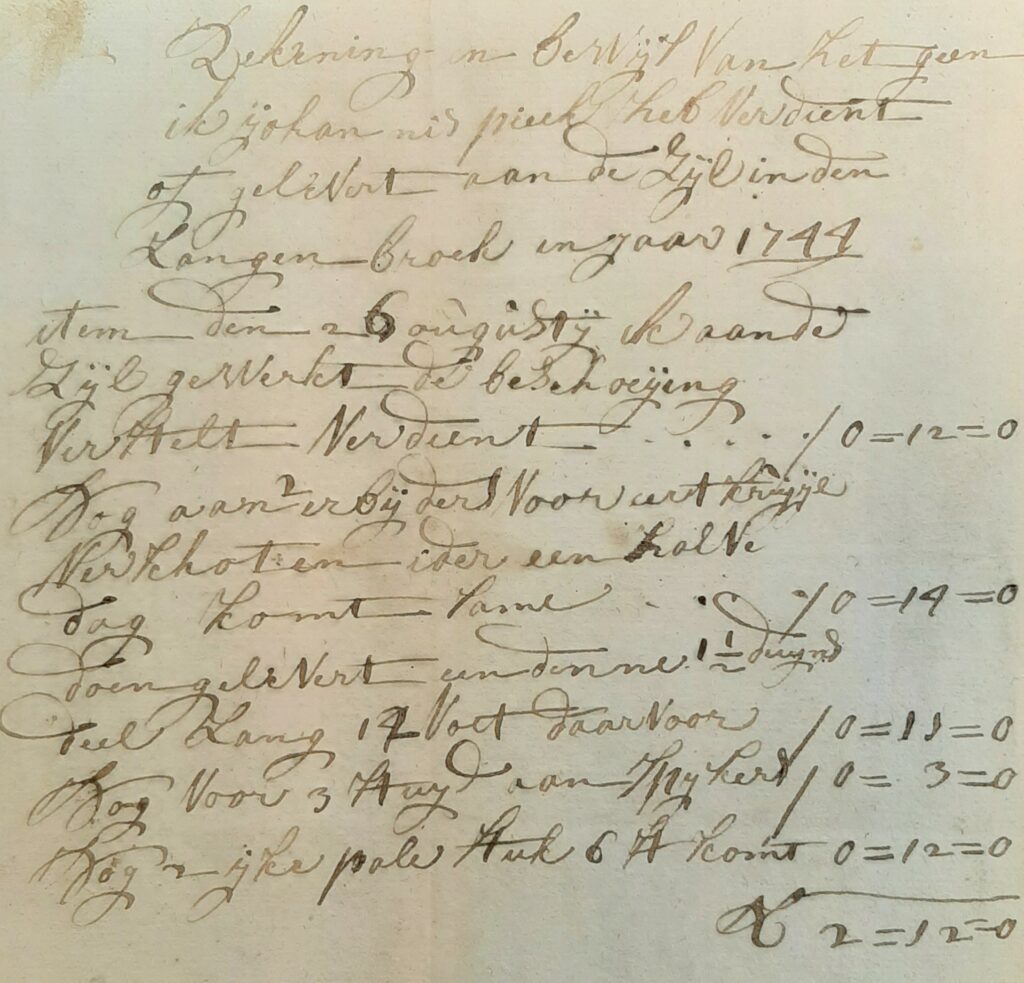 Rekening en bewijs Van het geen
ik yohan nis pieck heb Verdient
of geleVert aan de Zijl in den
Langen broek in yaar 1744
item den 26 augusty ik aan de
Zijl geWerkt de beschoeijing
Verstelt Verdient . . . . / 0=12=0
Nog aan 2 erbijders Voor
Verschoten ider een halVe
dag komt same . . / 0=14=0
doen geleVert een denne 1 1/2 duyms
deel Lang 14 Voet daarVoor / 0=11=0
Nog Voor 3 stuy aan spykers / 0= 3=0
Nog 2 ijke pale stuk 6 st komt 0=12=0
2=12=0